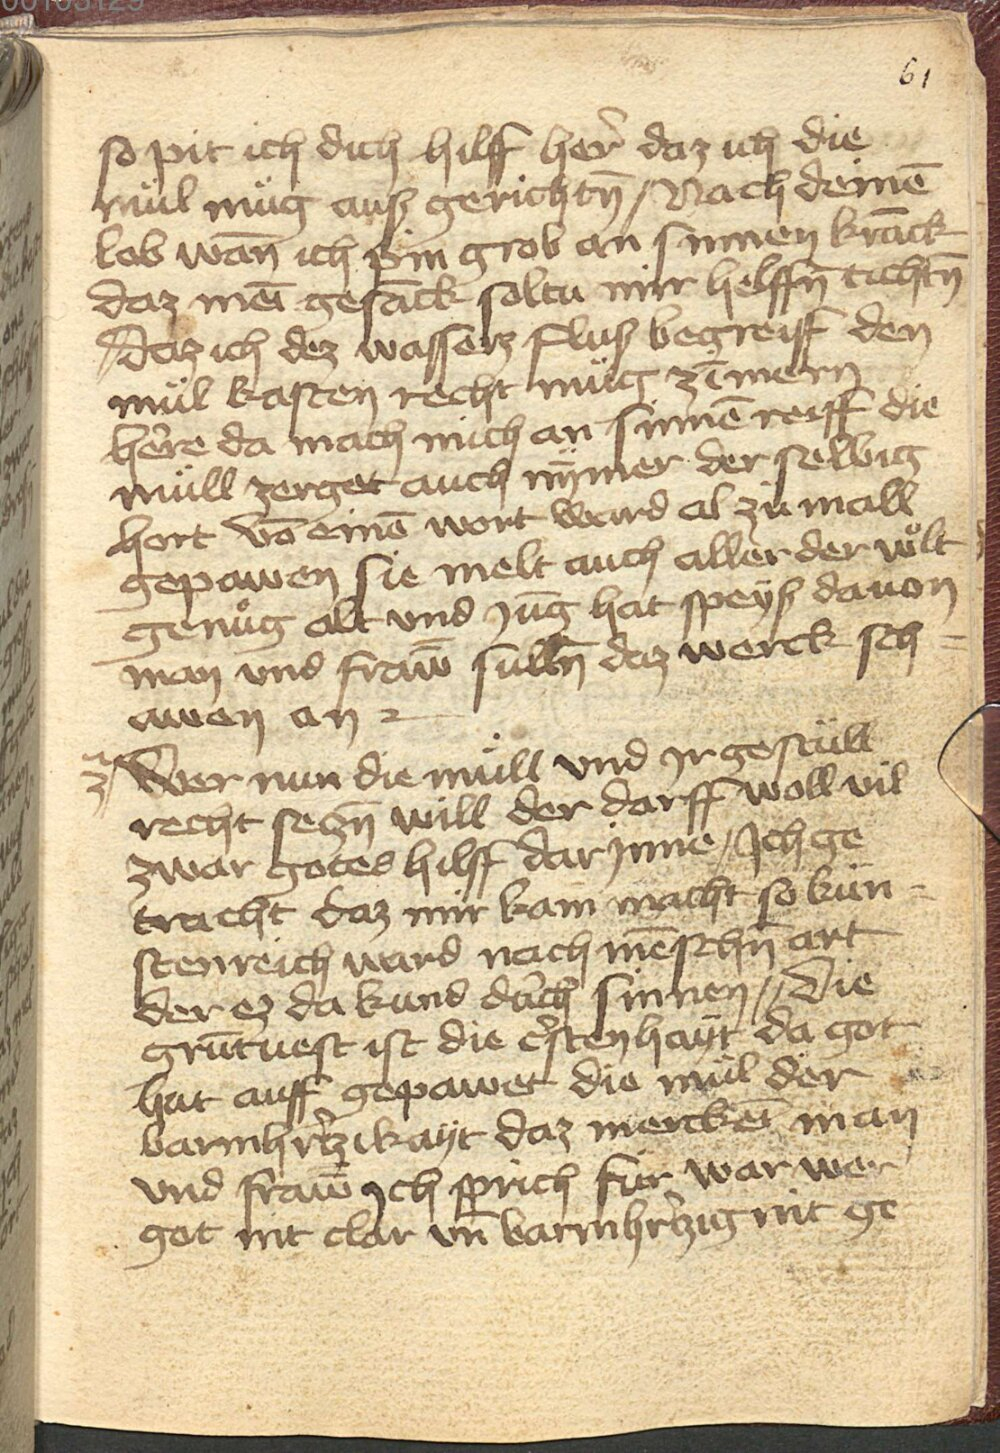 00105129
61
so pit ich dich hilff her̕ daz ich die
mül müg auß gerichtn̄ / Nach deinē
lob wan̄ ich pin grob an sinnen krāck
daz meī gesāck soltu mir helffn̄ tichtn̄
Daz ich dez wasserz fluß begreiff den
mül kasten recht müg zīmern
he̕re da mach mich an sinnē reiff die
müll zerget auch nym̄er der selbig
hort vō einē wort ward al zu mall
gepawen sie melt auch aller der wͦlt
genuͦg alt vnd Jūg hat speyß dauon
man vnd fraw̄ sulln̄ daz werck sch =
awen an
3 / Wer nun die müll vnd Jr gestüll
recht sechn̄ will der darff woll vil
zwar gotes hilff dar Jnne / Jch ge
tracht daz mir kam macht so kün -
stenreich ward nach mēschn̄ art
der ez da kund durch sinnen // Die
grūtuest ist die cͬstenhayt da got
hat auff gepawet die mül der
barmhr̕tzikayt daz merckeī man
vnd fraw̄ Jch sprich für war wer
got nit clar vn̄ barmhr̕tzig nit ge